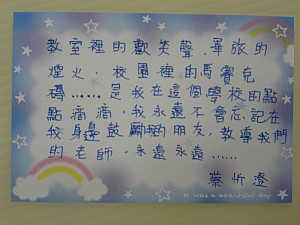 教室裡的歡笑聲，畢旅的
煙火，校園裡的馬賽克
磚……是我在這個學校的點
點滴滴，我永遠不會忘記在
我身邊鼓勵我的朋友，教導我們
的老師，永遠永遠……
蔡忻澄
It was a beautiful day